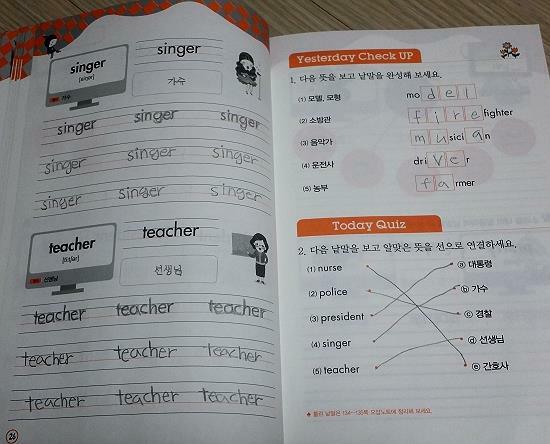 singer
[síŋər]
가수
singer
가수
singer singer singer
singer singer singer
singer singer singer
teacher
[tíːtʃər]
선생님
teacher
선생님
teacher teacher teacher
teacher teacher teacher
teacher teacher teacher
26
Yesterday Check UP
1. 다음 뜻을 보고 낱말을 완성해 보세요.
(1) 모델, 모형 model
(2) 소방관 firefighter
(3) 음악가 musician
(4) 운전사 driver
(5) 농부 farmer
Today Quiz
2. 다음 낱말을 보고 알맞은 뜻을 선으로 연결하세요.
(1) nurse ⓐ 대통령
(2) police ⓑ 가수
(3) president ⓒ 경찰
(4) singer ⓓ 선생님
(5) teacher ⓔ 간호사
♠ 틀린 낱말은 134~135쪽 오답노트에 정리해 보세요.